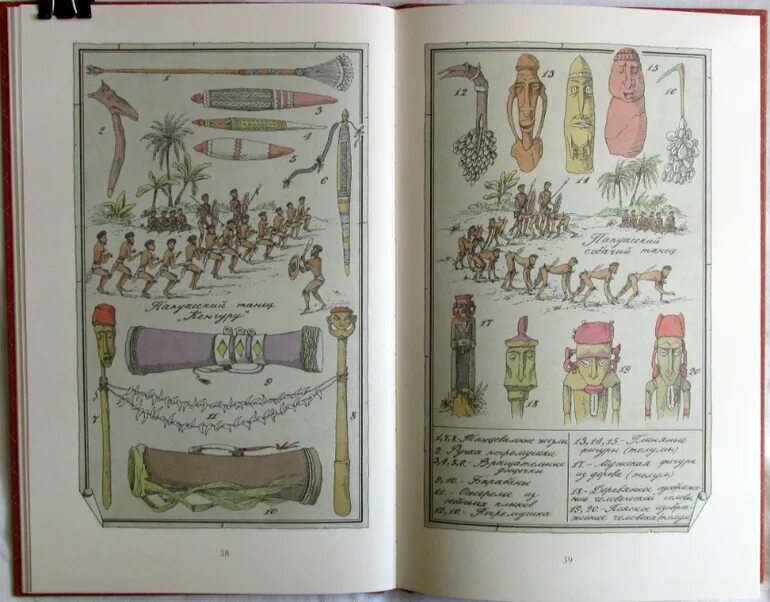 1
2
3
4
5
6
Папуасский танец
„Кенгуру"
7
8
9
11
10
38
12
13
14
15
16
Папуасский
собачий танец
17
18
19
20
1,7,8-Танцевальные жезлы
2- Ручка погремушки
3,4,5,6,- Вращательные
дощечки
9,10.- Барабаны
11- Ожерелье из
собачьих клыков
12,16.- Погремушка
13,14,15- Глиняные
фигуры (телумы)
17.- Мужская фигура
из дерева (телум)
18- Деревянное изображе-
ние человеческой головы
19,20.-Поясное изобра-
жение человека (телум)
39